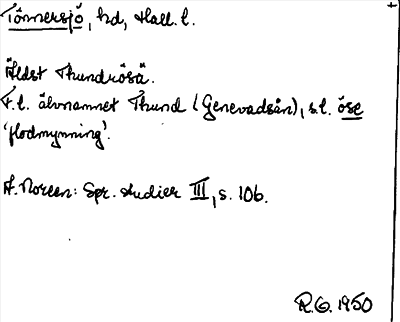 Tönnersjö, hd, Hall. l.
Äldst Thundrösä.
F.l. älvnamnet Thund (Genevadsån), s.l. öse
'flodmynning'.
A. Noreen: Spr. studier III, s. 106.
R.G. 1950